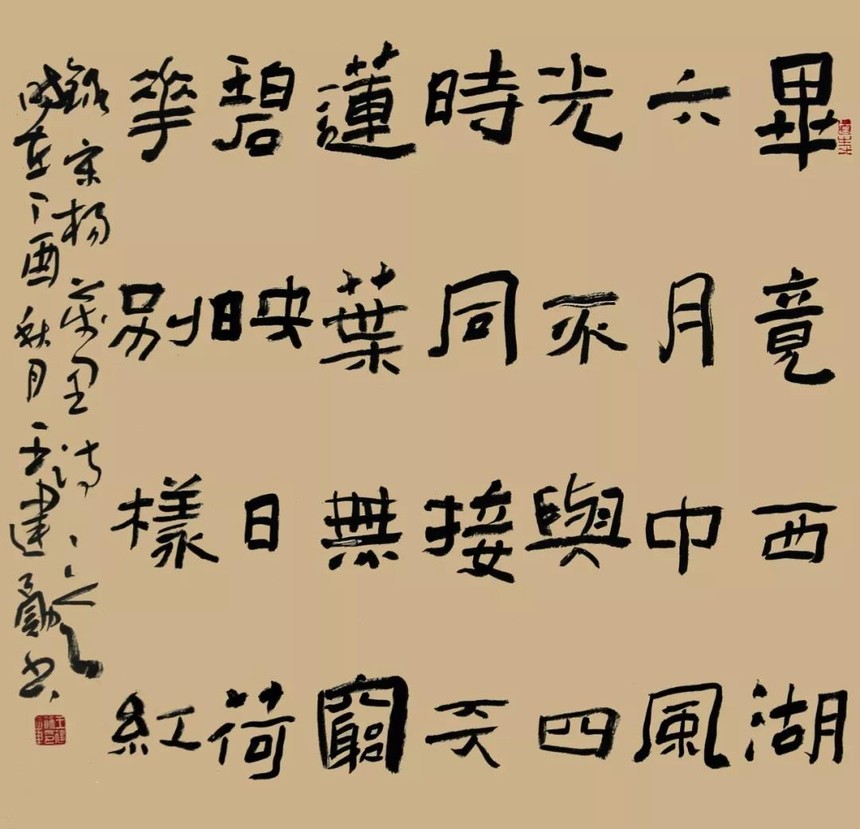 畢竟西湖
六月中風
光不與四
時同接天
蓮葉無窮
碧映日荷
華別樣紅
錄宋杨萬里诗
時在丁酉秋月王建勳书